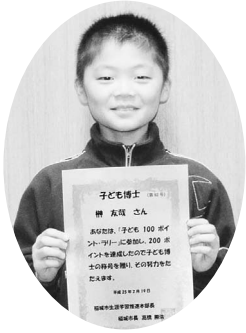 子ども博士
榊 友哉 さん
あなたは、「子ども 100 ポイ
ント・ラリー」に参加し、200 ポ
イントを達成したので子ども博
士の称号を贈り、その努力をた
たえます。
平成 25 年 2 月 19 日
稲城市生涯学習推進本部長
稲城市長 高橋 勝浩